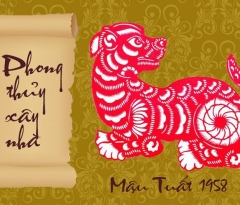 Phong
thủy
xây
nhà
Mậu Tuất 1958